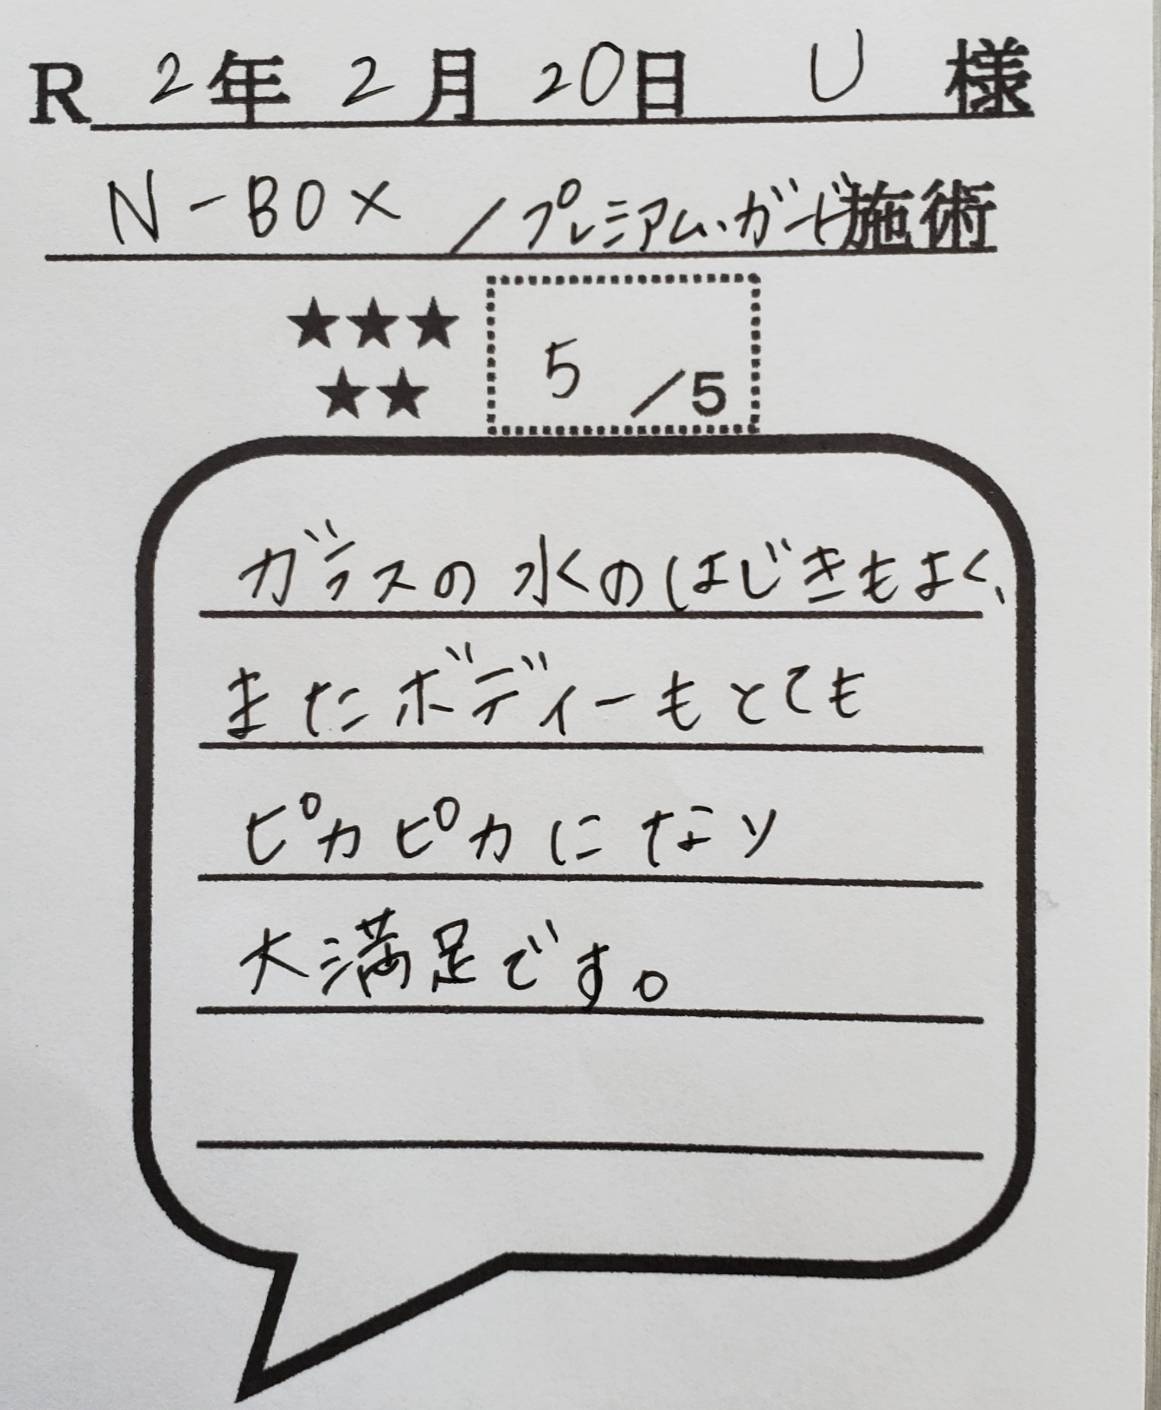 R 2年 2月 20日 U 様
N-BOX /プレミアム・ガード施術
★★★
★★
5 /5
ガラスの水のはじきもよく、
またボディーもとても
ピカピカになり
大満足です。